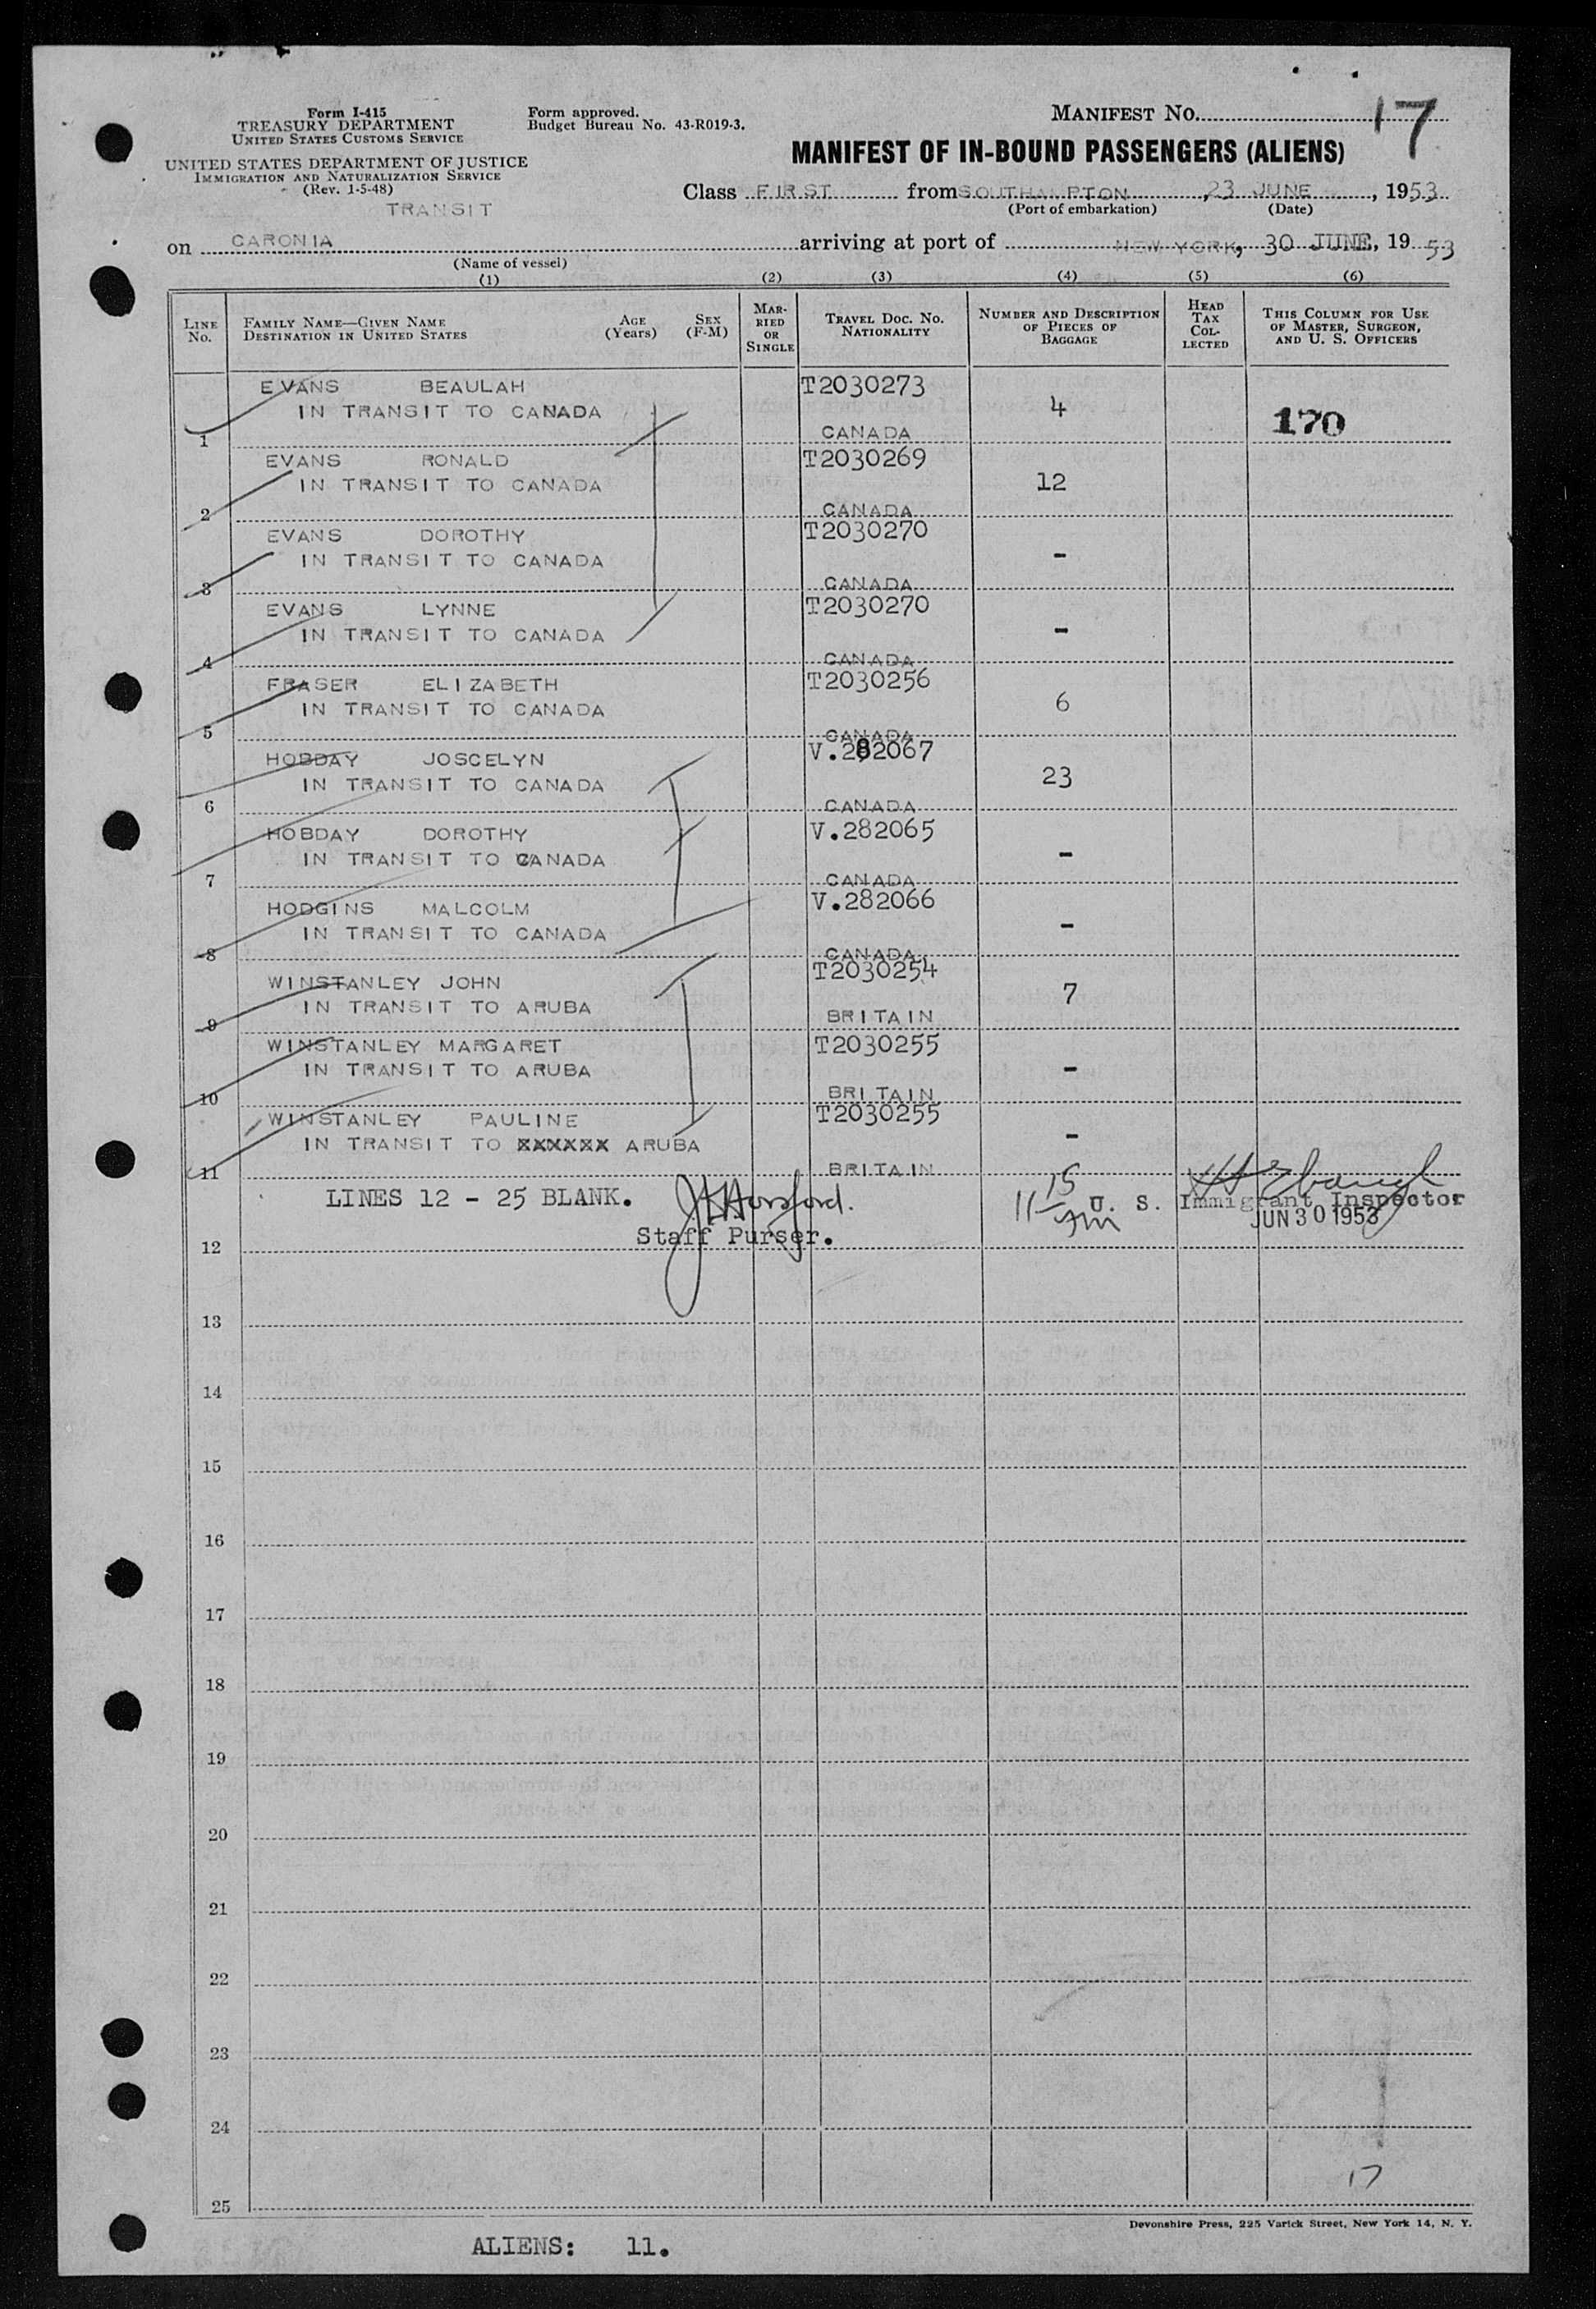 Form I-415
TREASURY DEPARTMENT
UNITED STATES CUSTOMS SERVICE
UNITED STATES DEPARTMENT OF JUSTICE
IMMIGRATION AND NATURALIZATION SERVICE
(Rev. 1-5-48)
TRANSIT
Form approved.
Budget Bureau No. 43-R019-3.
MANIFEST NO. 17
MANIFEST OF IN-BOUND PASSENGERS (ALIENS)
Class FIRST from SOUTHAMPTON, 23 JUNE, 1953
(Port of embarkation) (Date)
on CARONIA arriving at port of NEW YORK, 30 JUNE, 1953
(Name of vessel)
(1) (2) (3) (4) (5) (6)
LINE NO. FAMILY NAME—GIVEN NAME DESTINATION IN UNITED STATES AGE (Years) SEX (F-M) MARRIED OR SINGLE TRAVEL DOC. NO. NATIONALITY NUMBER AND DESCRIPTION OF PIECES OF BAGGAGE HEAD TAX COLLECTED THIS COLUMN FOR USE OF MASTER, SURGEON, AND U. S. OFFICERS
EVANS BEAULAH T2030273
IN TRANSIT TO CANADA 4 170
1 CANADA
EVANS RONALD T2030269
IN TRANSIT TO CANADA 12
2 CANADA
EVANS DOROTHY T2030270
IN TRANSIT TO CANADA -
3 CANADA
EVANS LYNNE T2030270
IN TRANSIT TO CANADA -
4 CANADA
FRASER ELIZABETH T2030256
IN TRANSIT TO CANADA 6
5 CANADA
HOBDAY JOSCELYN V.282067
IN TRANSIT TO CANADA 23
6 CANADA
HOBDAY DOROTHY V.282065
IN TRANSIT TO CANADA -
7 CANADA
HODGINS MALCOLM V.282066
IN TRANSIT TO CANADA -
8 CANADA
WINSTANLEY JOHN T2030254
IN TRANSIT TO ARUBA 7
9 BRITAIN
WINSTANLEY MARGARET T2030255
IN TRANSIT TO ARUBA -
10 BRITAIN
WINSTANLEY PAULINE T2030255
IN TRANSIT TO XXXXXX ARUBA -
11 BRITAIN
LINES 12 - 25 BLANK. 11 15 AM U. S. Immigrant Inspector
JUN 30 1953
Staff Purser.
12
13
14
15
16
17
18
19
20
21
22
23
24
17
25
Devonshire Press, 225 Varick Street, New York 14, N. Y.
ALIENS: 11.